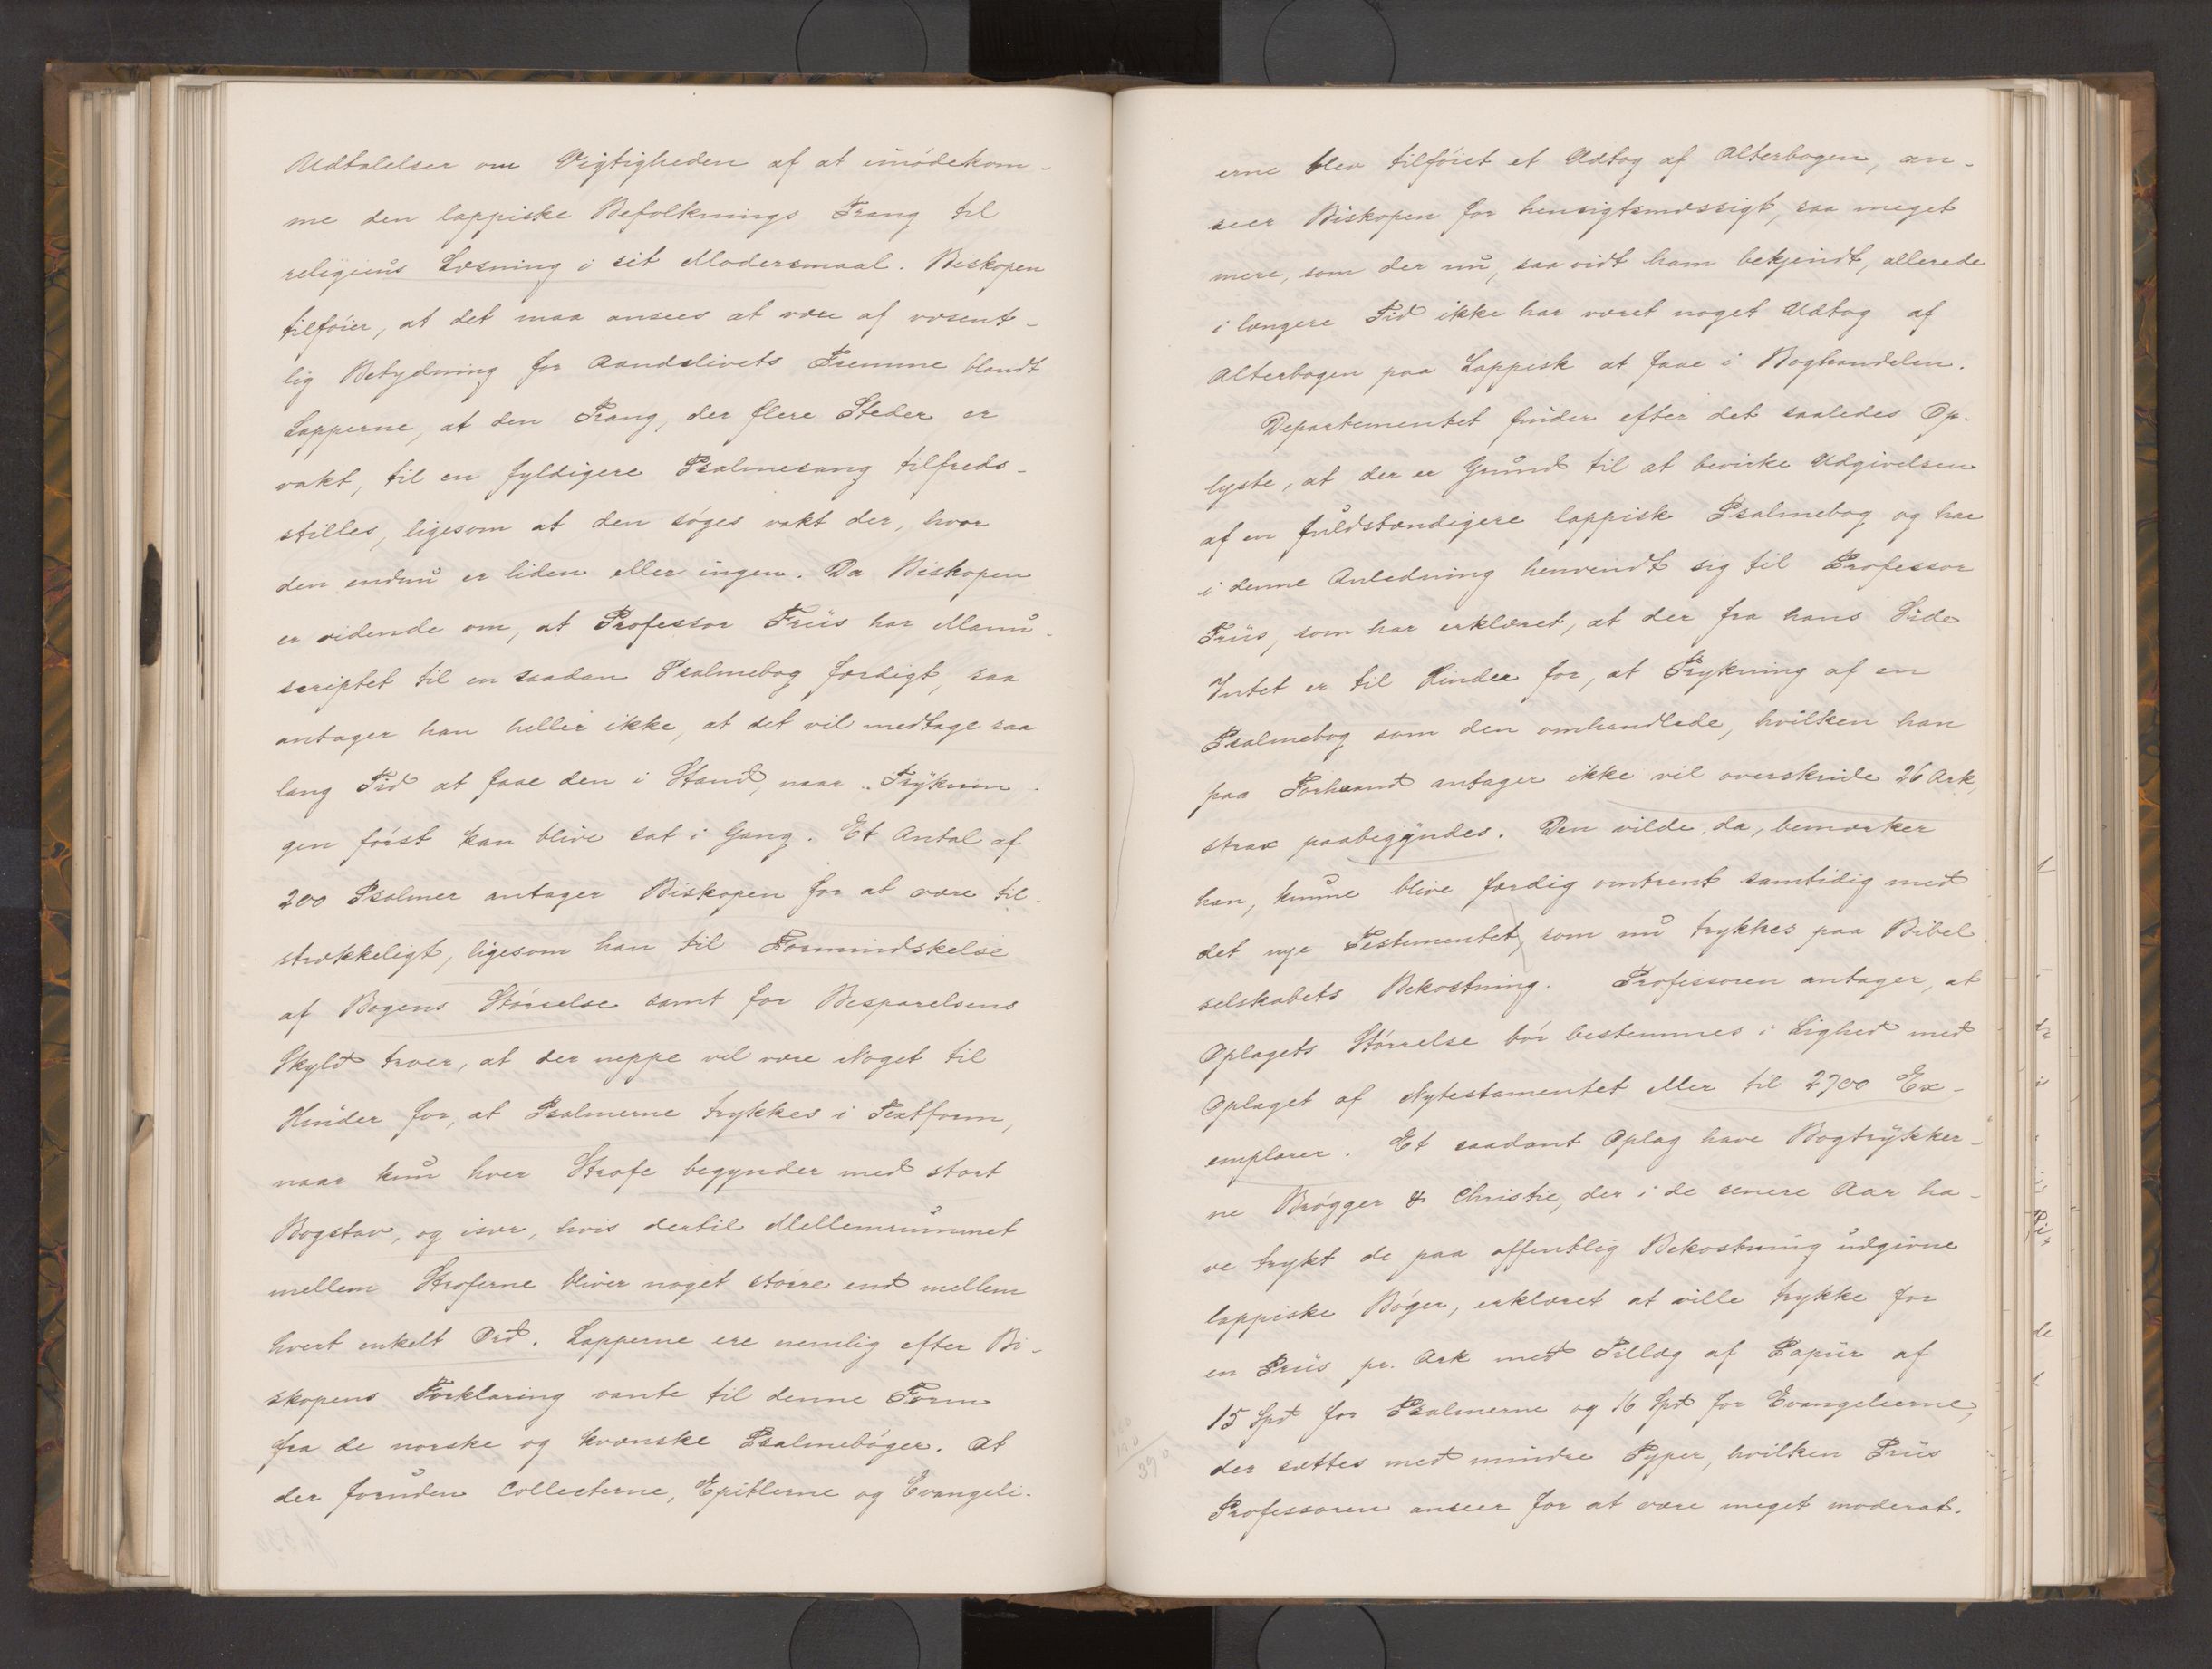 Udtalelser om Vigtigheden af at imødekom-
me den lappiske Befolknings Trang til
religiøus Læsning i sit Modersmaal. Biskopen
tilføier, at det maa ansees at være af væsent-
lig Betydning for Aandslivets Fremme blandt
Lapperne, at den Trang, der flere Steder er
vakt, til en fyldigere Psalmesang tilfreds-
stilles, ligesom at den søges vakt der, hvor
den endnu er liden eller ingen. Da Biskopen
er vidende om, at Professor Friis har Manu-
scriptet til en saadan Psalmebog færdigt, saa
antager han heller ikke, at det vil medtage saa
lang Tid at faae den i Stand, naar Tryknin-
gen først kan blive sat i Gang. Et Antal af
200 Psalmer antager Biskopen for at være til-
strækkeligt, ligesom han til Formindskelse
af Bogens Størrelse samt for Besparelsens
Skyld troer, at der neppe vil være Noget til
Hinder for, at Psalmerne trykkes i Textform,
naar kun hver Strofe begynder med stort
Bogstav, og især, hvis dertil Mellemrummet
mellem Stroferne bliver noget større end mellem
hvert enkelt Ord. Lapperne ere nemlig efter Bi-
skopens Forklaring vante til denne Form
fra de norske og kvænske Psalmebøger. At
der foruden Collecterne, Epistlerne og Evangeli-
erne blev tilføiet et Udtog af Alterbogen, an-
seer Biskopen for hensigtsmæssigt, saa meget
mere, som der nu, saavidt ham bekjendt, allerede
i længere Tid ikke har været noget Udtog af
Alterbogen paa Lappisk at faae i Boghandelen.
Departementet finder efter det saaledes Op-
lyste, at der er Grund til at bevirke Udgivelsen
af en fuldstændigere lappisk Psalmebog og har
i denne Anledning henvendt sig til Professor
Friis, som har erklæret, at der fra hans Side
Intet er til Hinder for, at Trykning af en
Psalmebog som den omhandlede, hvilken han
paa Forhaand antager ikke vil overskride 26 Ark,
strax paabegyndes. Den vilde da, bemærker
han, kunne blive færdig omtrent samtidig med
det nye Testamentet, som nu trykkes paa Bibel
selskabets Bekostning. Professoren antager, at
Oplagets Størrelse bør bestemmes i Lighed med
Oplaget af Nytestamentet eller til 2700 Ex-
emplarer. Et saadant Oplag have Bogtrykker-
ne Brøgger & Christie, der i de senere Aar ha-
ve trykt de paa offentlig Bekostning udgivne
lappiske Bøger, erklæret at ville trykke for
en Priis pr. Ark med Tillæg af Papiir af
15 Spd for Psalmerne og 16 Spd for Evangelierne,
der sættes med mindre Typer, hvilken Priis
Professoren anseer for at være meget moderat.
390